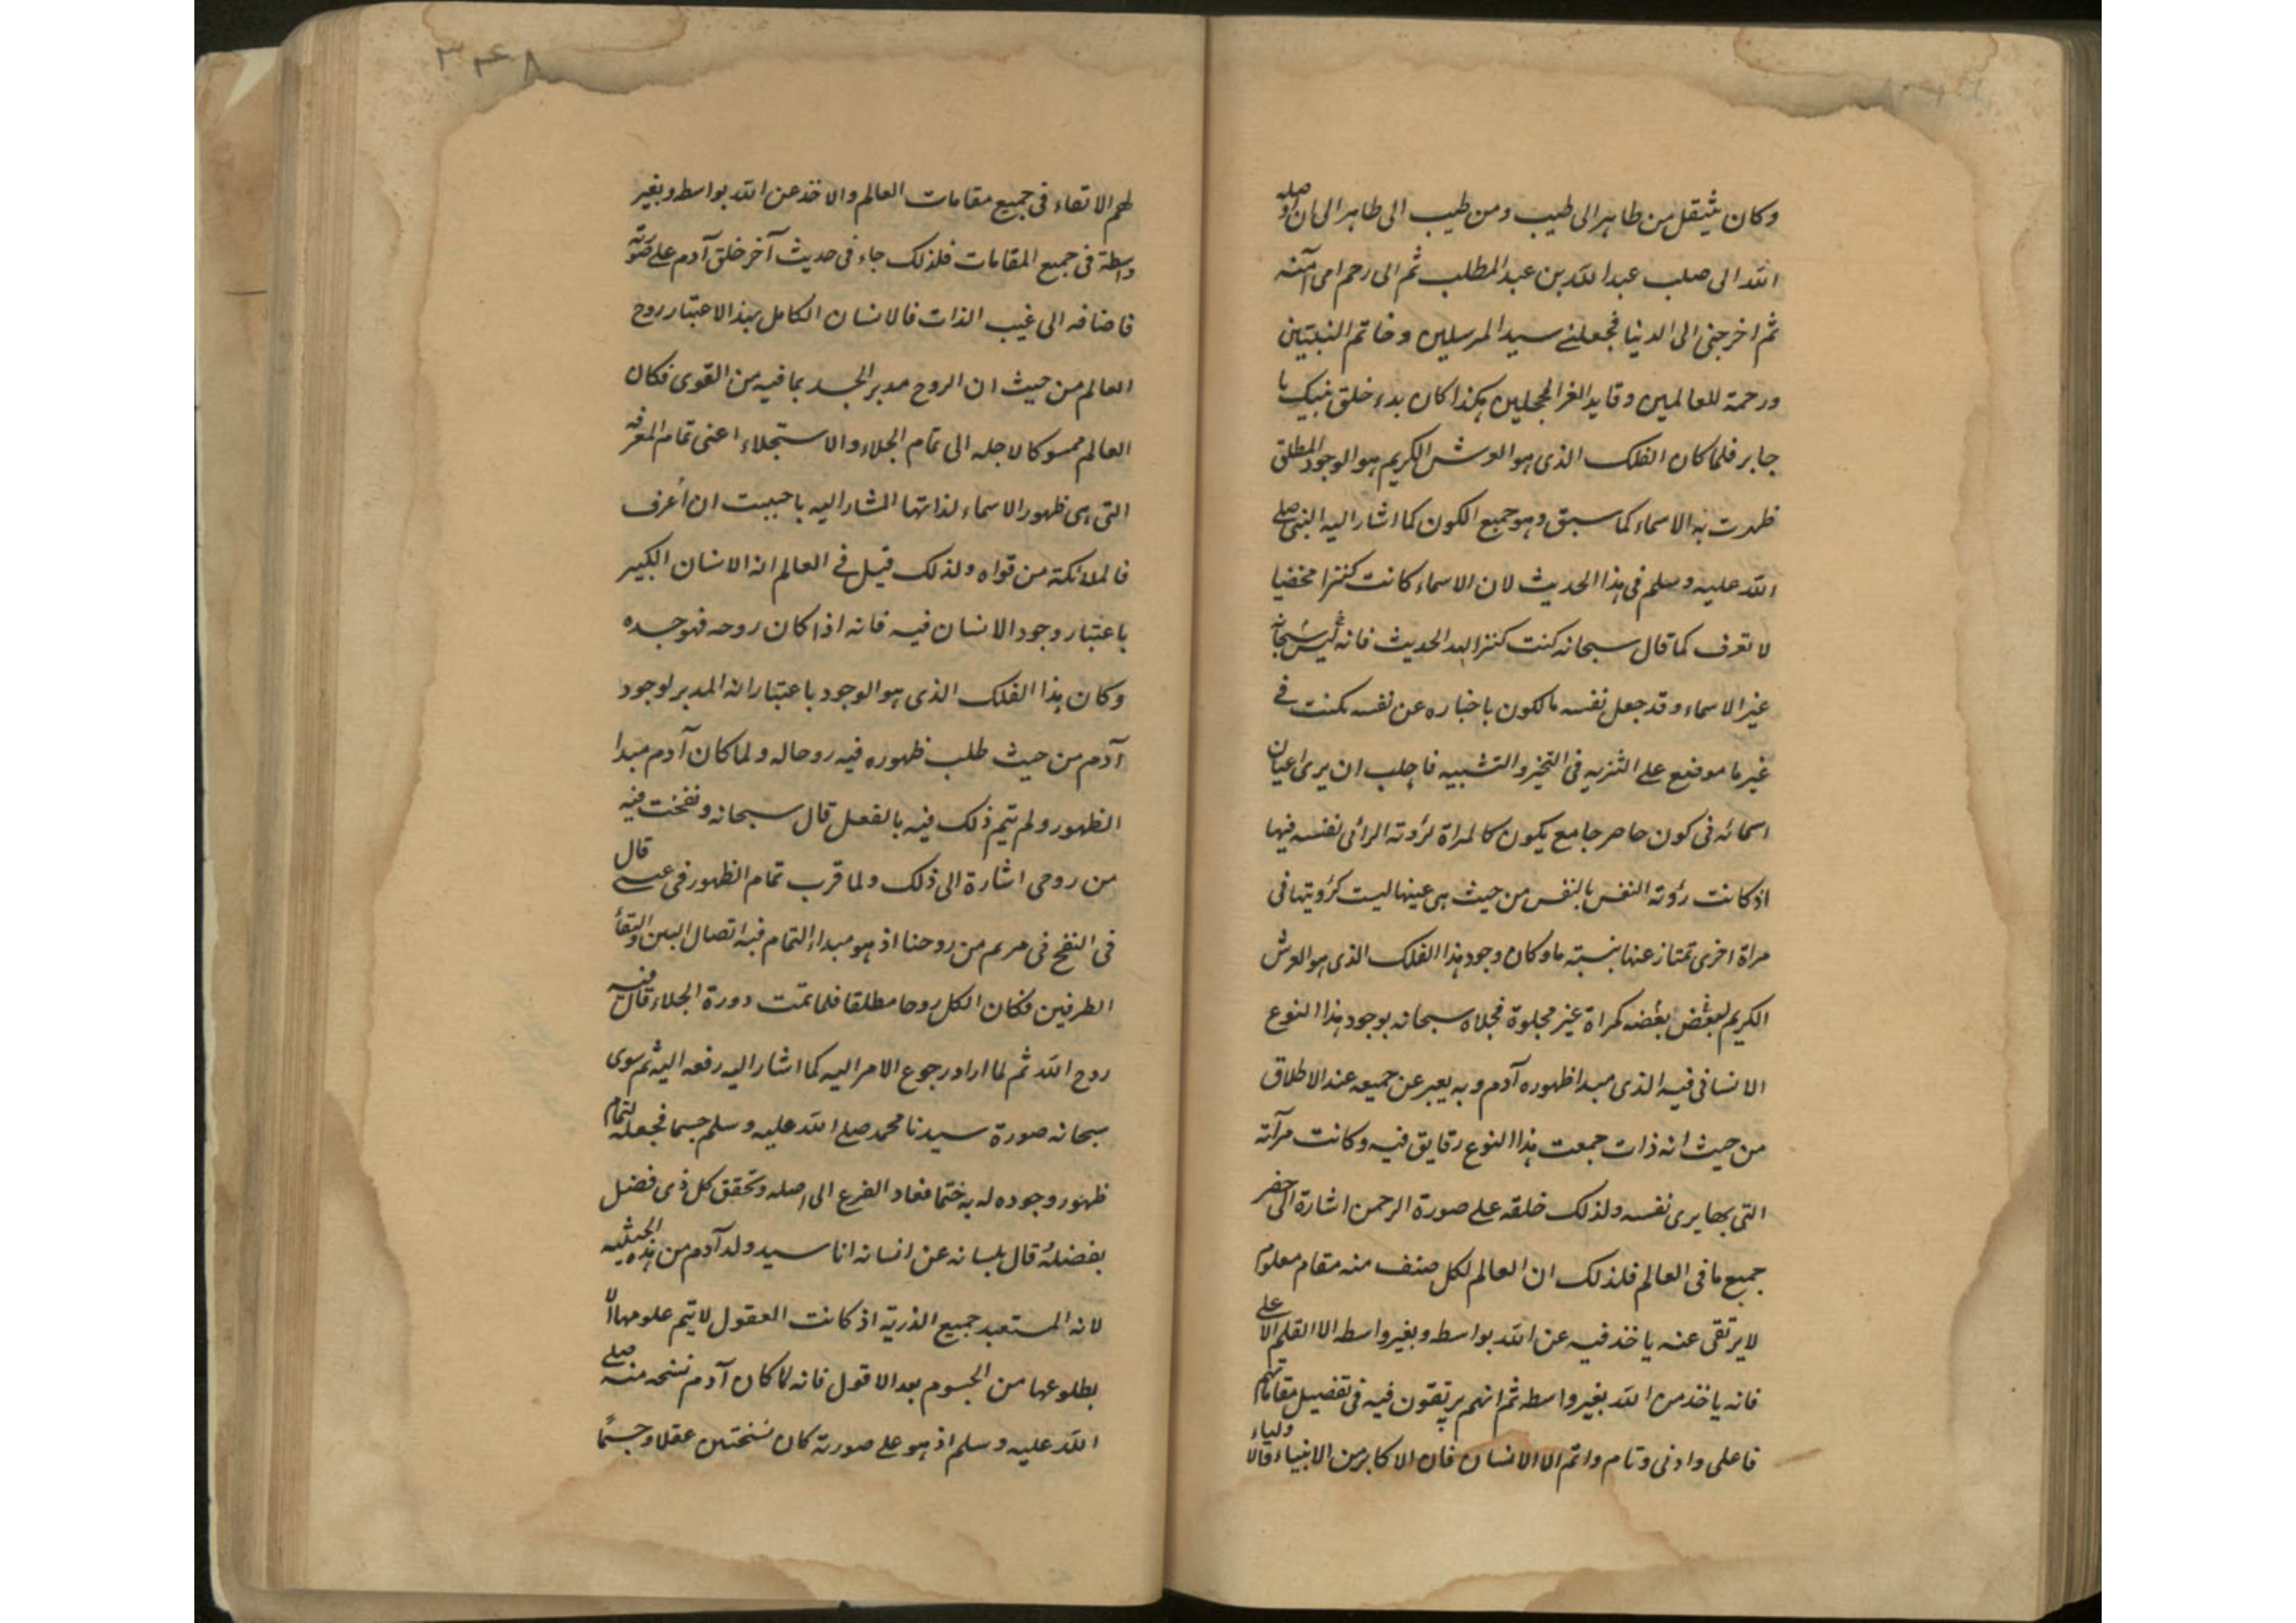 وكان ينتقل من طاهر الى طيب ومن طيب الى طاهر الى ان اوصله
الله الى صلب عبد الله بن عبد المطلب ثم الى رحم امى آمنه
ثم اخرجنى الى الدنيا فجعلنے سيد المرسلين وخاتم النبيين
ورحمة للعالمين وقايد الغر المحجلين هكذا كان بدء خلق نبيك يا
جابر فلما كان الفلك الذى هو العرش الكريم هو الوجود المطلق
ظهرت به الاسماء كما سبق وهو جميع الكون كما اشار اليه النبى صلے
الله عليه وسلم فى هذا الحديث لان الاسماء كانت كنزا مخفيا
لا تعرف كما قال سبحانه كنت كنزا الحديث فانه ليس ثم سبحانه
غير الاسماء وقد جعل نفسه مالكون باخباره عن نفسه بكنت فے
غير ما موضع على التنزيه فى التخير والتشبيه فاحب ان يرى اعيان
اسمائه فى كون حاصر جامع يكون كالمراة لرؤته الرائى نفسه فيها
اذ كانت رؤته النفس بالنفس من حيث هى عينها ليست كرؤيتها فى
مراة اخرى تمتاز عنها بنسبته ما وكان وجود هذا الفلك الذى هو العرش
الكريم لبعض بعضه كمراة غير مجلوة فجلاه سبحانه بوجود هذا النوع
الانسانى فيه الذى مبدا ظهوره آدم وبه يعبر عن جميعه عند الاطلاق
من حيث انه ذات جمعت هذا النوع رقايق فيه وكانت مرآته
التى بها يرى نفسه ولذلك خلقه على صورة الرحمن اشارة الى حضر
جميع ما فى العالم فلذلك ان العالم لكل صنف منه مقام معلوم
لا يرتقى عنه ياخذ فيه عن الله بواسطه وبغير واسطه الا القلم الاعلے
فانه ياخذ من الله بغير واسطه ثم انهم يرتقون فيه فى تفصيل مقاماتهم
فاعلى وادنى وتام واتم الا الانسان فان الاكابر من الانبياء والاولياء
٣٤٨
لهم الارتقاء فى جميع مقامات العالم والاخذ عن الله بواسطه وبغير
واسطة فى جميع المقامات فلذلك جاء فى حديث آخر خلق آدم على صورته
فاضافه الى غيب الذات فالانسان الكامل بهذا الاعتبار روح
العالم من حيث ان الروح مدبر الجسد بما فيه من القوى فكان
العالم ممسوكا لاجله الى تمام الجلاء والاستجلاء اعنى تمام المعرفه
التى هى ظهور الاسماء لذاتها المشار اليه باحببت ان أعرف
فالملائكة من قواه ولذلك قيل فے العالم انه الانسان الكبير
باعتبار وجود الانسان فيه فانه اذا كان روحه فهو جسده
وكان هذا الفلك الذى هو الوجود باعتبار انه المدبر لوجود
آدم من حيث طلب ظهوره فيه روحاله ولما كان آدم مبدا
الظهور ولم يتم ذلك فيه بالفعل قال سبحانه ونفخت فيه
من روحى اشارة الى ذلك ولما قرب تمام الظهور فى عيسے قال
فى النفخ فى مريم من روحنا اذ هو مبدا التمام فيه اتصال البين والتقاء
الطرفين فكان الكل روحا مطلقا فلما تمت دورة الجلاء قال فيه
روح الله ثم لما اراد رجوع الامر اليه كما اشار اليه رفعه اليه ثم سوى
سبحانه صورة سيدنا محمد صلے الله عليه وسلم جسما فجعله لتمام
ظهور وجوده له به ختما فعاد الفرع الى اصله وتحقق كل ذى فضل
بفضله قال بلسانه عن انسانه انا سيد ولد آدم من هذه الحيثيه
لانه المستعبد جميع الذرية اذ كانت العقول لا يتم علومها الا
بطلوعها من الجسوم بعد الافول فانه لما كان آدم نسخه منه صلے
الله عليه وسلم اذ هو على صورته كان نسختين عقلا وجسمًا